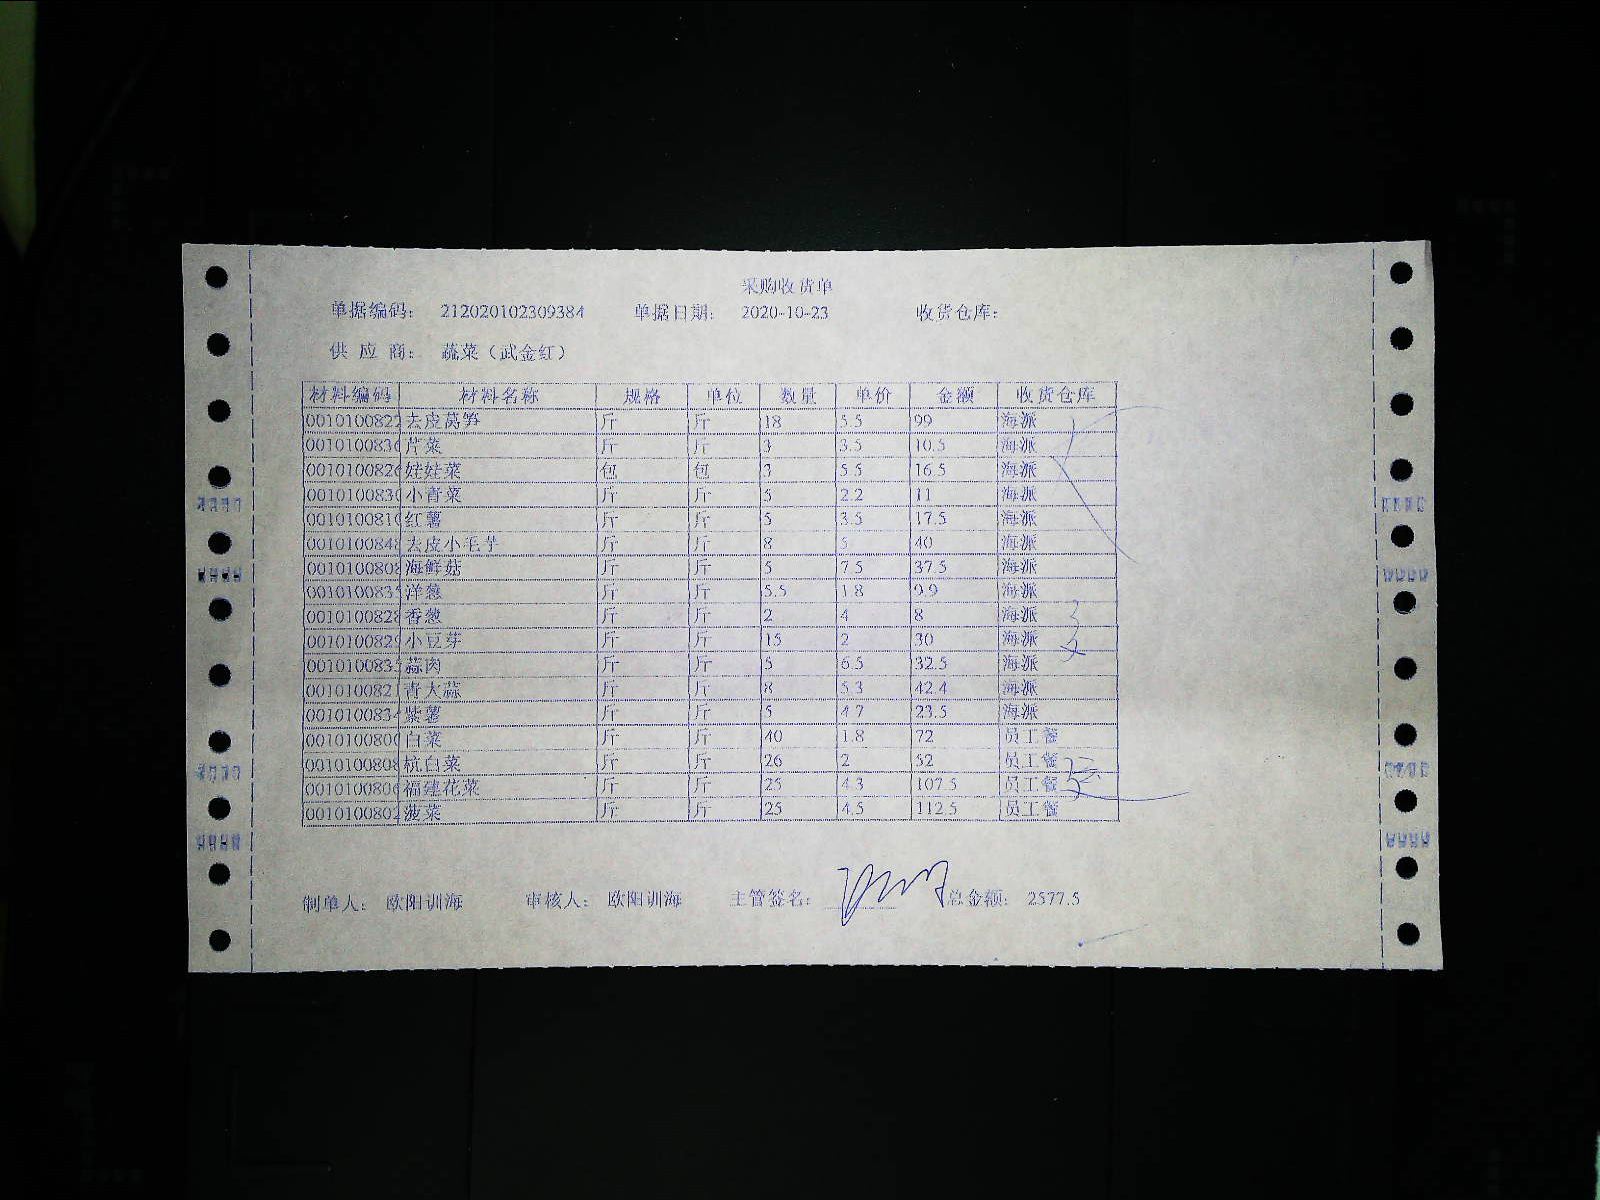 采购收货单
单据编码: 212020102309384 单据日期: 2020-10-23 收货仓库:
供应商: 蔬菜（武金红）
材料编码 材料名称 规格 单位 数量 单价 金额 收货仓库
0010100822 去皮莴笋 斤 斤 18 5.5 99 海派
001010083 芹菜 斤 斤 3 3.5 10.5 海派
001010082 娃娃菜 包 包 3 5.5 16.5 海派
001010083 小青菜 斤 斤 5 2.2 11 海派
001010081 红薯 斤 斤 5 3.5 17.5 海派
001010084 去皮小毛芋 斤 斤 8 5 40 海派
001010080 海鲜菇 斤 斤 5 7.5 37.5 海派
001010083 洋葱 斤 斤 5.5 1.8 9.9 海派
0010100828 香葱 斤 斤 2 4 8 海派
001010082 小豆芽 斤 斤 15 2 30 海派
001010083 蒜肉 斤 斤 5 6.5 32.5 海派
0010100821 青大蒜 斤 斤 8 5.3 42.4 海派
001010083 紫薯 斤 斤 5 4.7 23.5 海派
001010080 白菜 斤 斤 40 1.8 72 员工餐
0010100808 杭白菜 斤 斤 26 2 52 员工餐
001010080 福建花菜 斤 斤 25 4.3 107.5 员工餐
0010100802 菠菜 斤 斤 25 4.5 112.5 员工餐
制单人: 欧阳训海 审核人: 欧阳训海 主管签名: 总金额: 2577.5